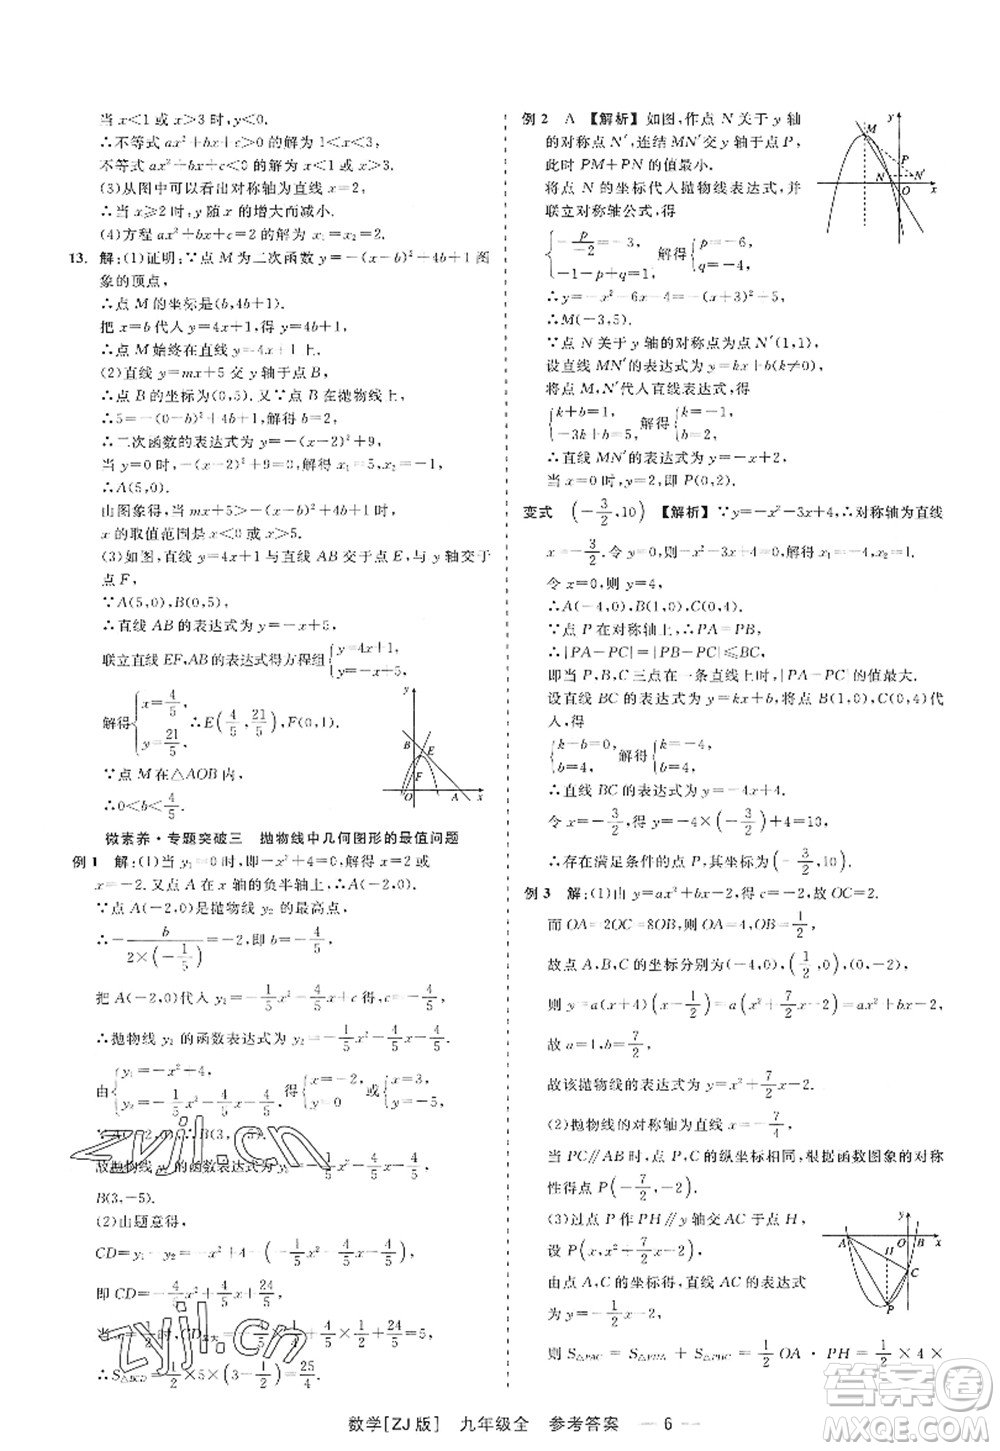 当 x<1 或 x>3 时，y<0.
∴不等式 ax²+bx+c>0 的解为 1<x<3，
不等式 ax²+bx+c<0 的解为 x<1 或 x>3.
(3)从图中可以看出对称轴为直线 x=2，
∴当 x≥2 时，y 随 x 的增大而减小.
(4)方程 ax²+bx+c=0 的解为 x₁=1，x₂=3.
13. 解：(1)证明：∵点 M 为二次函数 y=-(x-b)²+4b+1 图
象的顶点，
∴点 M 的坐标是(b,4b+1).
把 x=b 代入 y=4x+1，得 y=4b+1，
∴点 M 始终在直线 y=4x+1 上.
(2)直线 y=mx+5 交 y 轴于点 B，
∴点 B 的坐标为(0,5). 又∵点 B 在抛物线上，
∴5=-(0-b)²+4b+1，解得 b=2，
∴二次函数的表达式为 y=-(x-2)²+9，
当 y=0 时，-(x-2)²+9=0，解得 x₁=5，x₂=-1，
∴A(5,0).
由图象得，当 mx+5>-(x-b)²+4b+1 时，
x 的取值范围是 x<0 或 x>5.
(3)如图，直线 y=4x+1 与直线 AB 交于点 E，与 y 轴交于
点 F，
∵A(5,0)，B(0,5)，
∴直线 AB 的表达式为 y=-x+5，
联立直线 EF，AB 的表达式得方程组{y=4x+1, y=-x+5,
解得{x=4/5, y=21/5, ∴E(4/5,21/5)，F(0,1).
∵点 M 在△AOB 内，
∴0<b<4/5.
y B E F O A x
微素养·专题突破三 抛物线中几何图形的最值问题
例 1 解：(1)当 y₁=0 时，即-x²+4=0，解得 x=2 或
x=-2. 又点 A 在 x 轴的负半轴上，∴A(-2,0).
∵点 A(-2,0)是抛物线 y₂ 的最高点，
∴-b/(2×(-1/5))=-2，即 b=-4/5.
把 A(-2,0)代入 y₂=-1/5x²-4/5x+c，得 c=-4/5，
∴抛物线 y₂ 的函数表达式为 y₂=-1/5x²-4/5x-4/5.
由{y₁=-x²+4, y₂=-1/5x²-4/5x-4/5, 得{x=-2, y=0 或{x=3, y=-5.
∵A(-2,0)，∴B(3,-5).
故抛物线 y₂ 的函数表达式为 y₂=-1/5x²-4/5x-4/5，
B(3,-5).
(2)由题意得，
CD=y₁-y₂=-x²+4-(-1/5x²-4/5x-4/5)，
即 CD=-4/5x²+4/5x+24/5，
当 x=1/2 时，CD最大=-4/5×1/4+4/5×1/2+24/5=5，
∴S△BCD=1/2×5×(3-1/2)=25/4.
例 2 A 【解析】如图，作点 N 关于 y 轴
的对称点 N′，连结 MN′交 y 轴于点 P，
此时 PM+PN 的值最小.
将点 N 的坐标代入抛物线表达式，并
联立对称轴公式，得
{-p/-2=-3, -1-p+q=1, 解得{p=-6, q=-4.
∴y=-x²-6x-4=-(x+3)²+5，
∴M(-3,5).
∵点 N 关于 y 轴的对称点 N′(1,1)，
设直线 MN′的表达式为 y=kx+b(k≠0)，
将点 M，N′代入直线表达式，得
{k+b=1, -3k+b=5, 解得{k=-1, b=2,
∴直线 MN′的表达式为 y=-x+2，
当 x=0 时，y=2，即 P(0,2).
y M P N N′ O x
变式 (-3/2,10) 【解析】∵y=-x²-3x+4，∴对称轴为直线
x=-3/2. 令 y=0，则-x²-3x+4=0，解得 x₁=-4，x₂=1.
令 x=0，得 y=4，
∴A(-4,0)，B(1,0)，C(0,4).
∵点 P 在对称轴上，∴PA=PB，
∴|PA-PC|=|PB-PC|≤BC，
即当 P，B，C 三点在一条直线上时，|PA-PC|的值最大.
设直线 BC 的表达式为 y=kx+b，将点 B(1,0)，C(0,4)代
入，得
{k+b=0, b=4, 解得{k=-4, b=4,
∴直线 BC 的表达式为 y=-4x+4.
当 x=-3/2 时，y=-4×(-3/2)+4=10，
∴存在满足条件的点 P(-3/2,10).
例 3 解：(1)由 y=ax²+bx-2，得 c=-2，故 OC=2.
而 OA=2OC=8OB，则 OA=4，OB=1/2，
故点 A，B，C 的坐标分别为(-4,0)，(1/2,0)，(0,-2).
则 y=a(x+4)(x-1/2)=a(x²+7/2x-2)=ax²+bx-2，
故 a=1，b=7/2，
故该抛物线的表达式为 y=x²+7/2x-2.
(2)抛物线的对称轴为直线 x=-7/4，
当 PC∥AB 时，点 P，C 的纵坐标相同，根据函数图象的对称
性得点 P(-7/2,-2).
(3)过点 P 作 PH∥y 轴交 AC 于点 H，
设 P(x,x²+7/2x-2)，
由点 A，C 的坐标得，直线 AC 的表达式
为 y=-1/2x-2，
则 S△PAC=S△PHA+S△PHC=1/2 OA·PH=1/2×4×
y A H O B x C P
数学[ZJ版] 九年级全 参考答案 — 6 —
zyjl.cn
zyjl.cn
答案圈
MXQE.COM